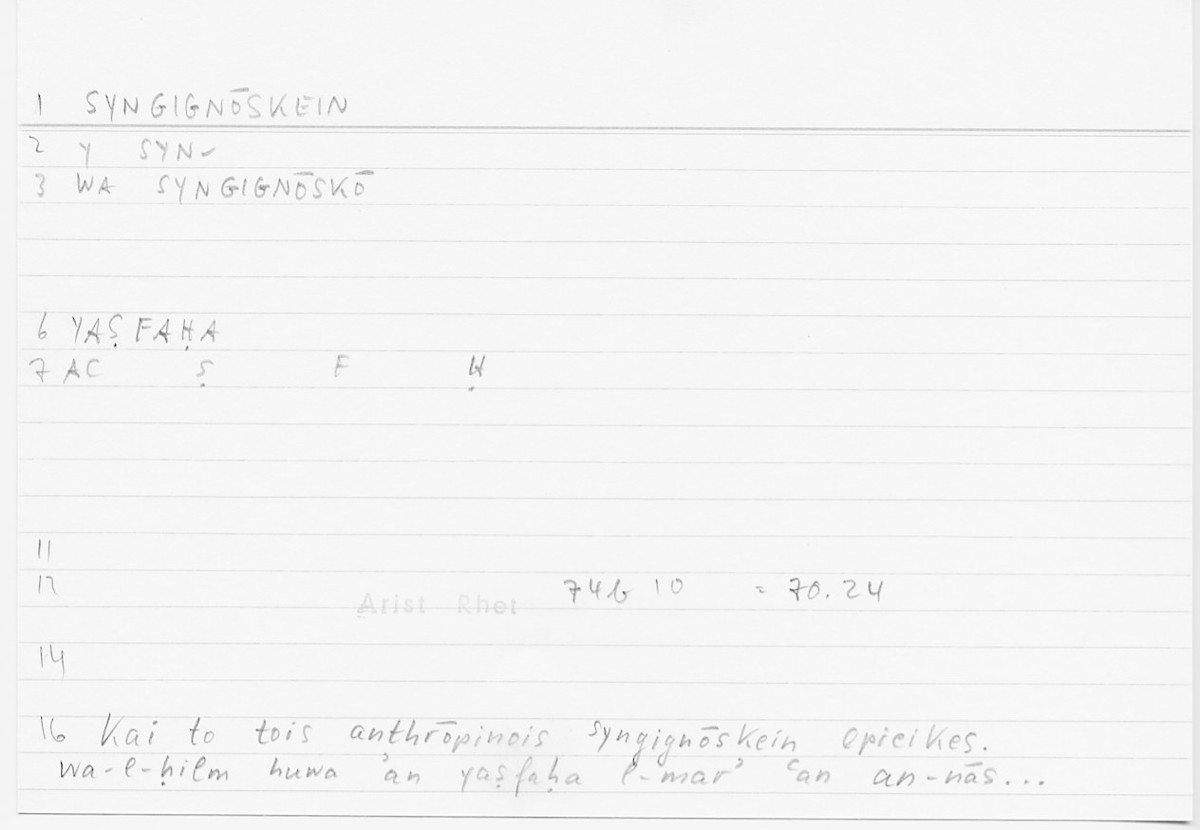 1 SYNGIGNŌSKEIN
2 Y SYN-
3 WA SYNGIGNŌSKŌ
6 YAṢFAḤA
7 AC Ṣ F Ḥ
11
12 Arist Rhet 74b 10 = 70.24
14
16 Kai to tois anthrōpinois syngignōskein epieikes.
wa-l-ḥilm huwa ʾan yaṣfaḥa l-marʾ ʿan an-nās...